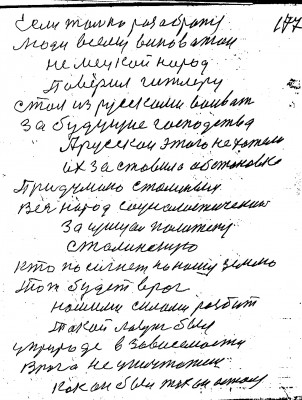 Если только разабрату 177
Люди всему виноватои
немецкои народ
Поверил гитлеру
стал из русскими воиват
За будущие господства
А русскои этого не хотело
их Заставило обстоновка
Придумано сталиным
Век народ социалистический
Защищал политику
сталинскую
Кто посягнет на нашу землю
Тот будет враг
нашими силами разбит
Такой лозунг был
у природе в Зависемости
Врага не уничтожит
как он был так он остал